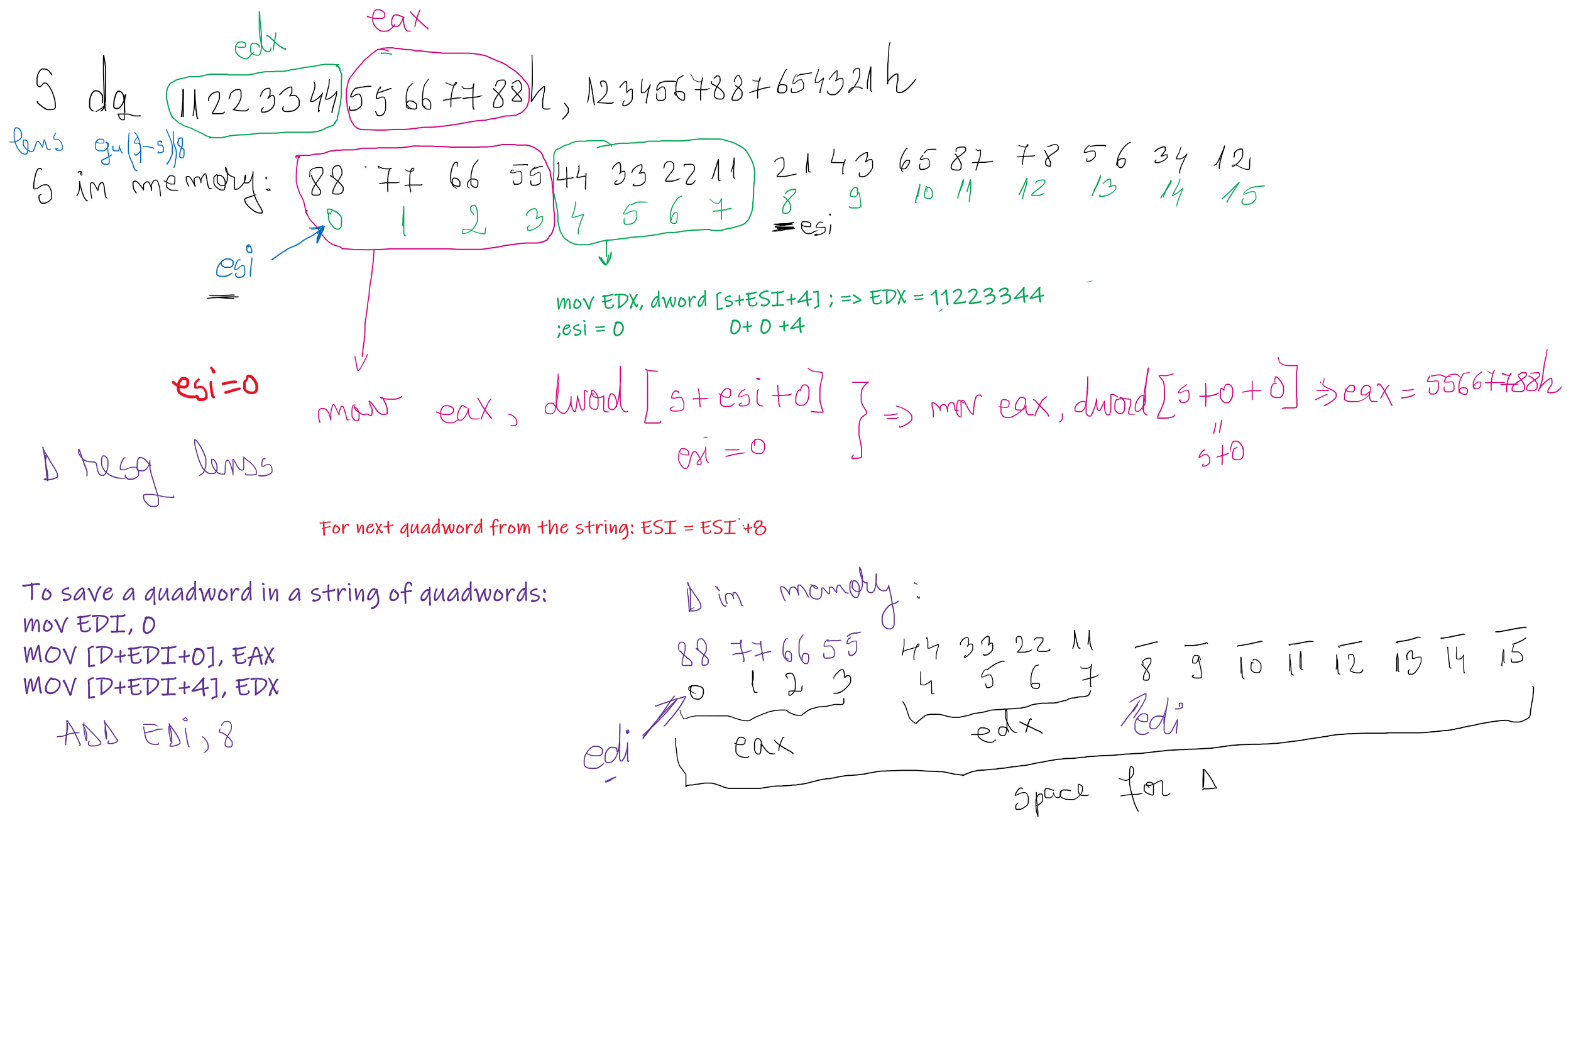 edx eax
S dq 11 22 33 44 55 66 77 88h, 1234567887654321h
lens equ ($-s)/8
S in memory: 88 77 66 55 44 33 22 11 21 43 65 87 78 56 34 12
0 1 2 3 4 5 6 7 8 9 10 11 12 13 14 15
esi
esi
mov EDX, dword [s+ESI+4] ; => EDX = 11223344
;esi = 0 0+ 0 +4
esi=0
mov eax, dword [s+esi+0] } => mov eax, dword [s+0+0] => eax = 55667788h
esi = 0
"
s+0
D resq lens
For next quadword from the string: ESI = ESI +8
To save a quadword in a string of quadwords:
mov EDI, 0
MOV [D+EDI+0], EAX
MOV [D+EDI+4], EDX
ADD EDi, 8
D in memory:
88 77 66 55 44 33 22 11 _ _ _ _ _ _ _ _
0 1 2 3 4 5 6 7 8 9 10 11 12 13 14 15
edi eax edx edi
space for D